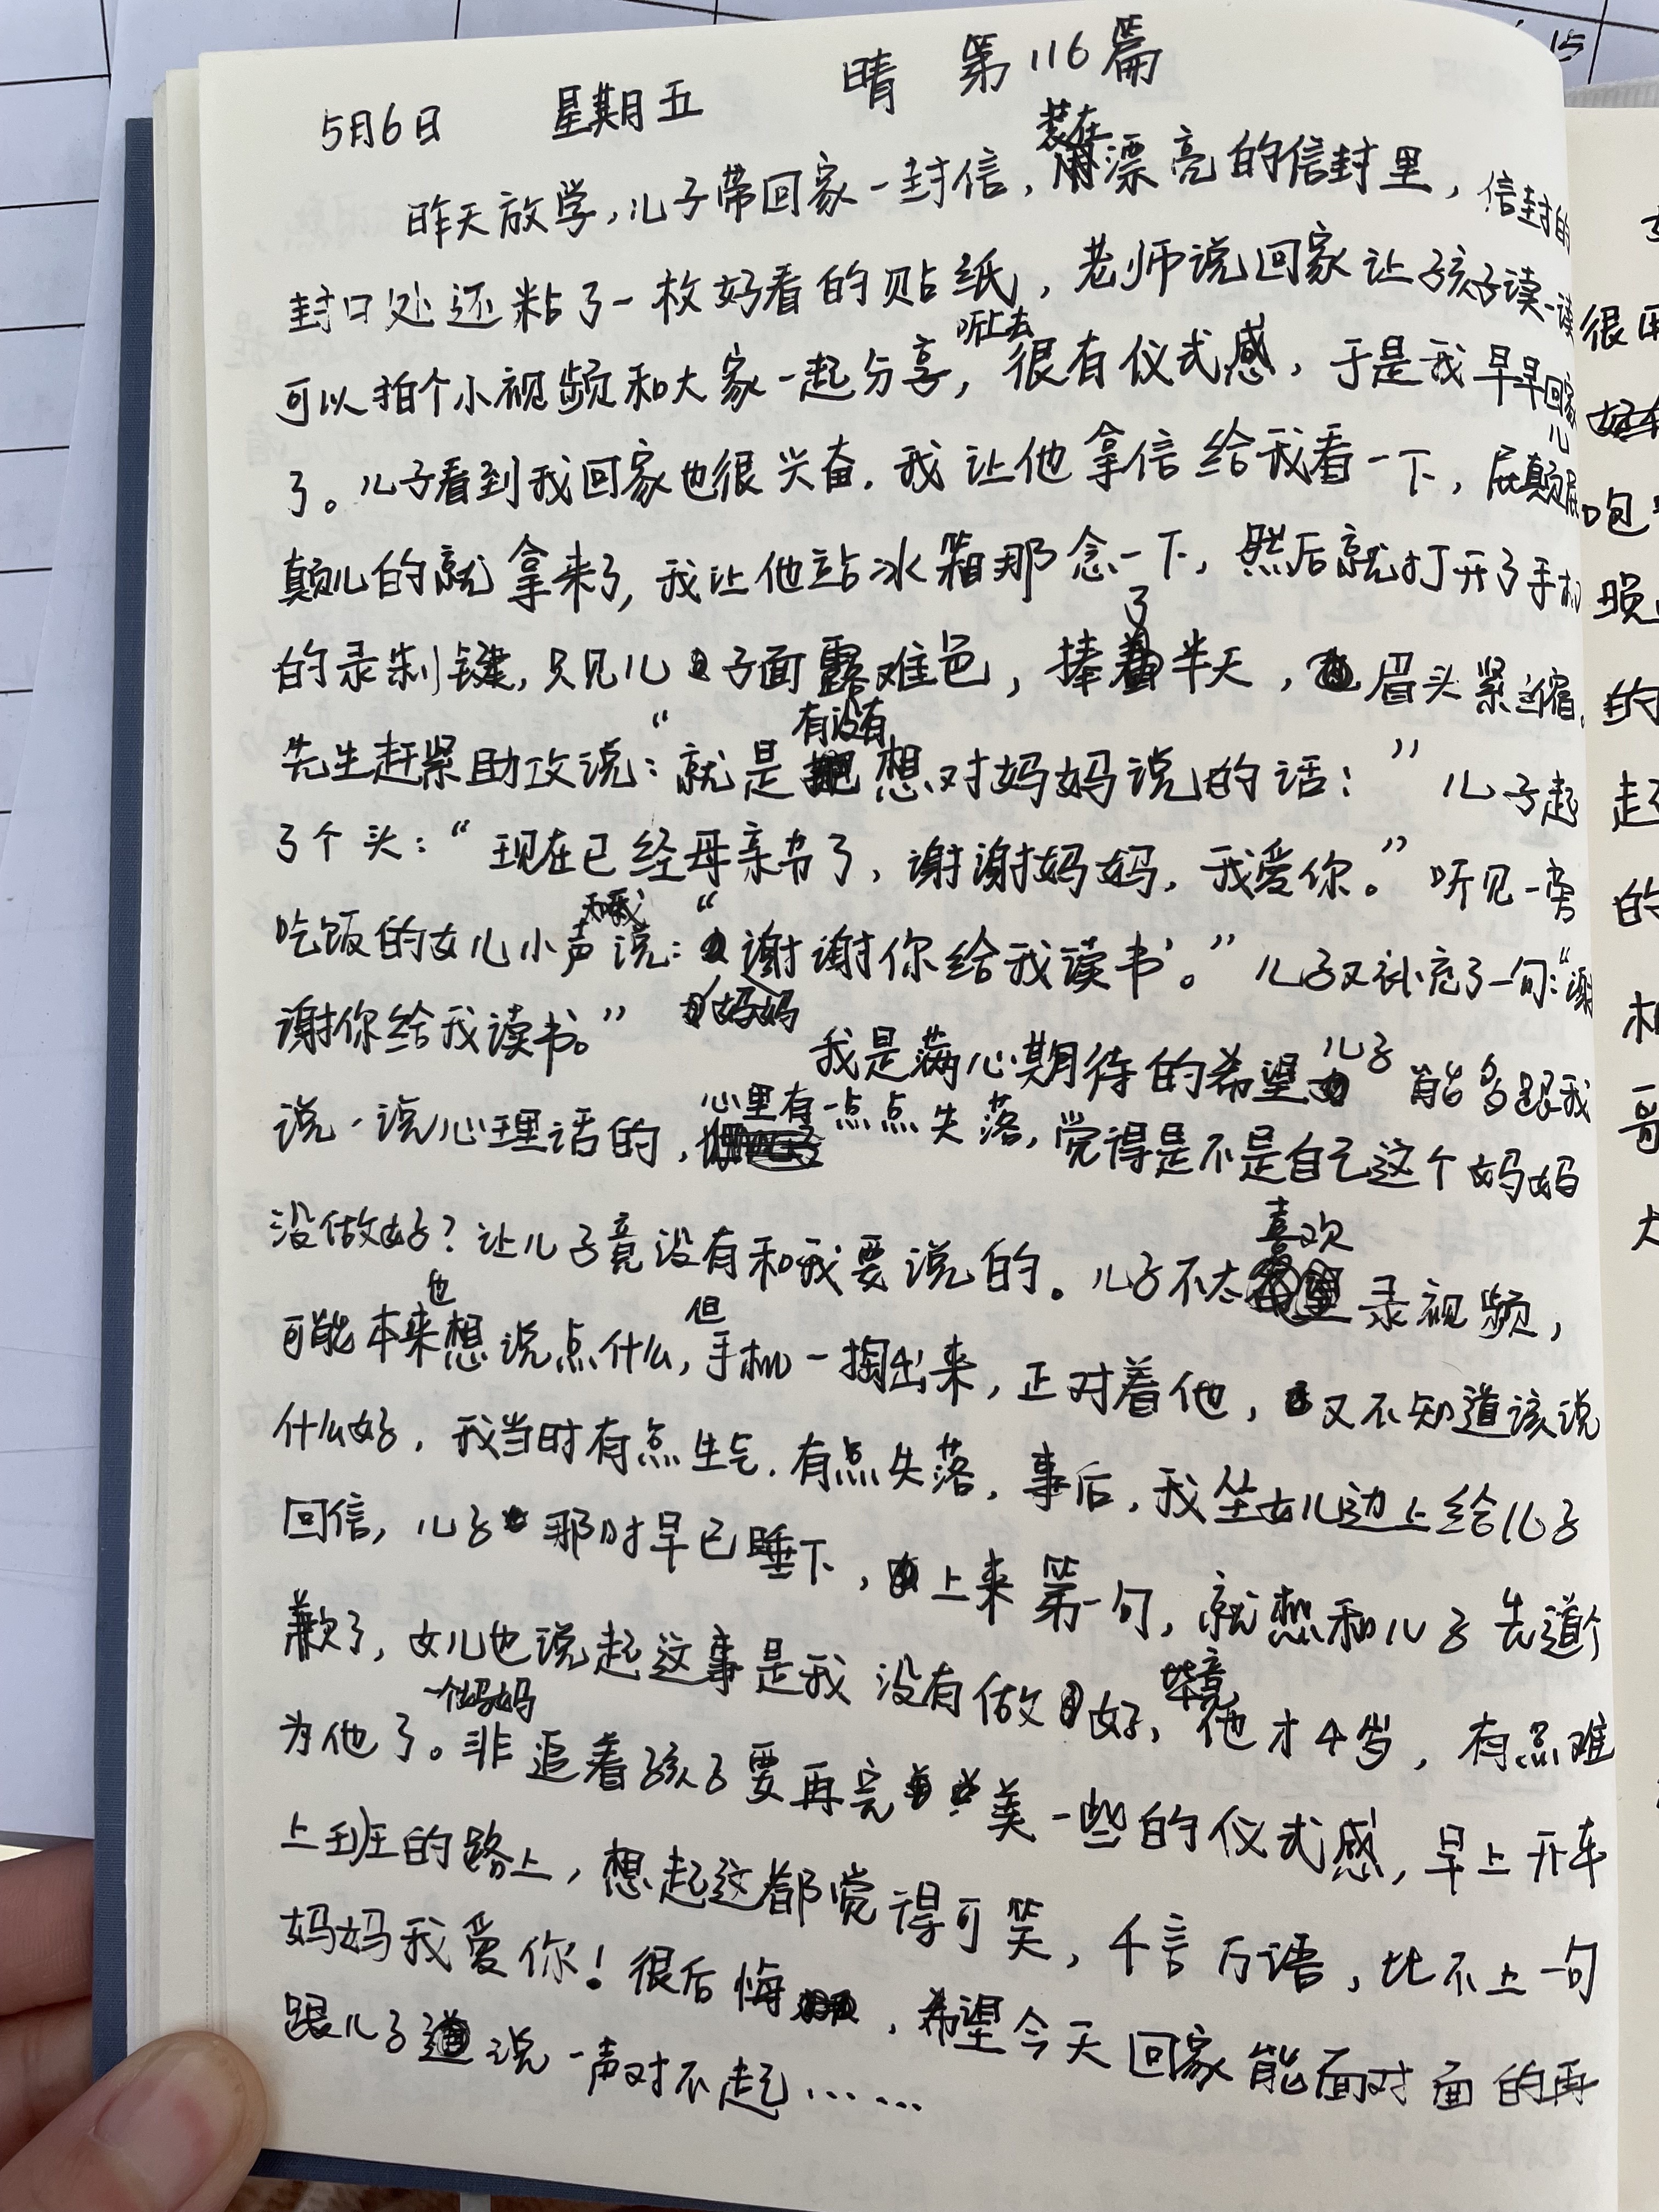 15
5月6日 星期五 晴 第116篇
昨天放学,儿子带回家一封信,装在漂亮的信封里,信封的
封口处还粘了一枚好看的贴纸,老师说回家让孩子读一读
可以拍个小视频和大家一起分享,听上去很有仪式感,于是我早早回家
了。儿子看到我回家也很兴奋.我让他拿信给我看一下,屁颠儿屁
颠儿的就拿来了,我让他站冰箱那念一下,然后就打开了手机
的录制键,只见儿子面露难色,捧了半天,眉头紧缩,
先生赶紧助攻说:“就是有没有想对妈妈说的话:”儿子起
了个头:“现在已经母亲节了,谢谢妈妈,我爱你。”听见一旁
吃饭的女儿小声和我说:“谢谢妈妈你给我读书。”儿子又补充了一句:“谢
谢你给我读书。”
我是满心期待的希望儿子能多跟我
说一说心理话的,心里有一点点失落,觉得是不是自己这个妈妈
没做好?让儿子竟没有和我要说的。儿子不太喜欢录视频,
可能本来也想说点什么,但手机一掏出来,正对着他,又不知道该说
什么好,我当时有点生气.有点失落,事后,我坐女儿边上给儿子
回信,儿子那时早已睡下,上来第一句,就想和儿子先道个
歉了,女儿也说起这事是我没有做好,毕竟他才4岁,有点难
为他了。一个妈妈非追着孩子要再完美一些的仪式感,早上开车
上班的路上,想起这都觉得可笑,千言万语,比不上一句
妈妈我爱你!很后悔,希望今天回家能面对面的再
跟儿子说一声对不起……
很
咆
的
起
的
大